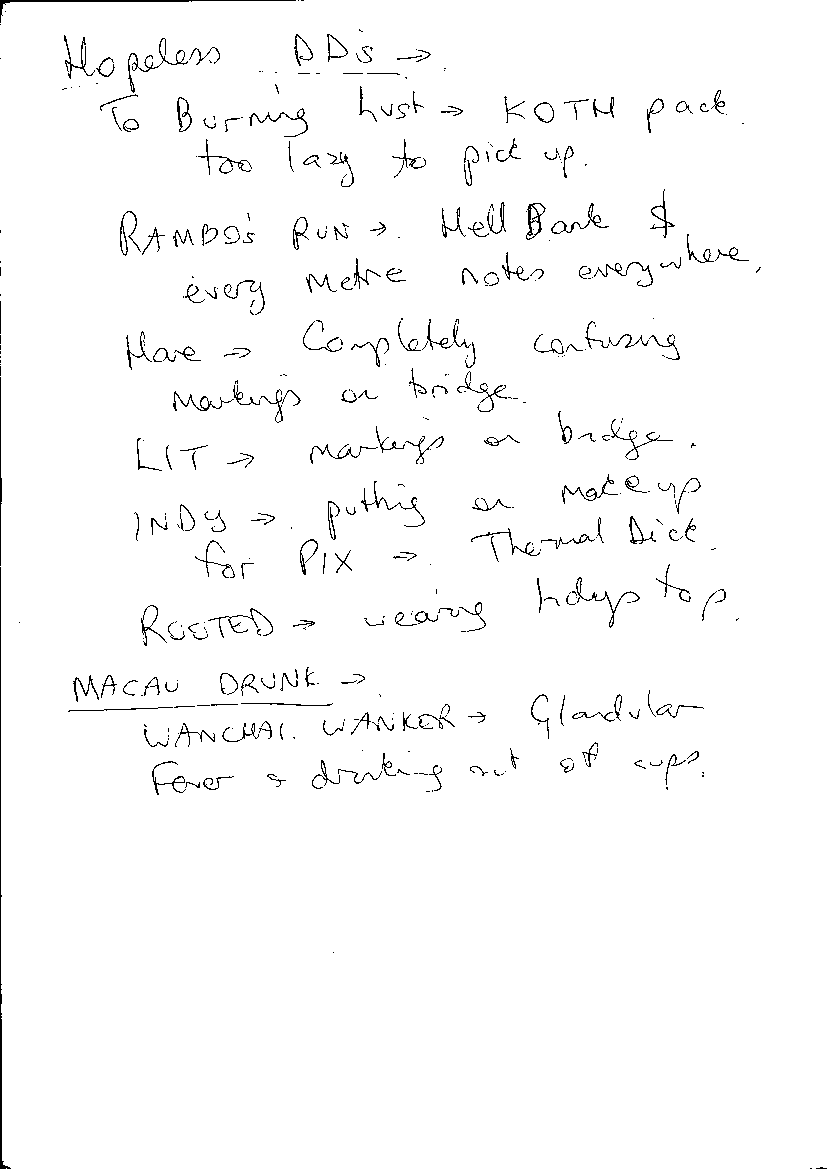 Hopeless DD's →
To Burning Lust → KOTH pack
too lazy to pick up.
RAMBO's RUN → Hell Bank $
every metre notes everywhere,
Hare → Completely confusing
markings on bridge.
LIT → markings on bridge.
INDY → putting on make up
for PIX → Thermal Dick.
ROOTED → wearing Indys top.
MACAU DRUNK →
WANCHAI WANKER → Glandular
Fever & drinking out of cups.